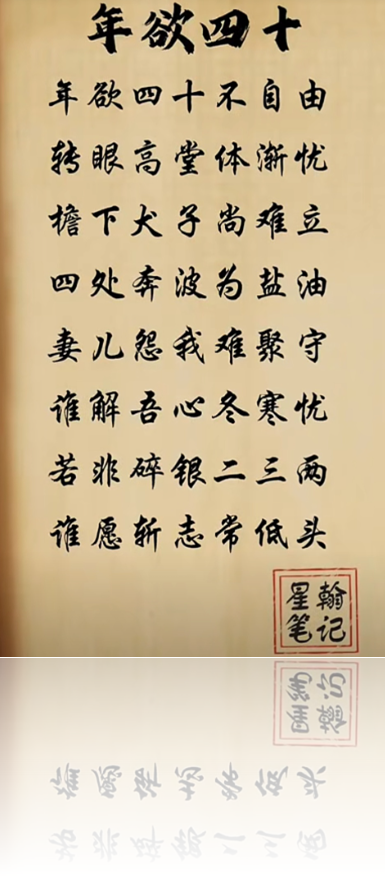 年欲四十
年欲四十不自由
转眼高堂体渐忧
檐下犬子尚难立
四处奔波为盐油
妻儿怨我难聚守
谁解吾心冬寒忧
若非碎银二三两
谁愿斩志常低头
星翰
笔记